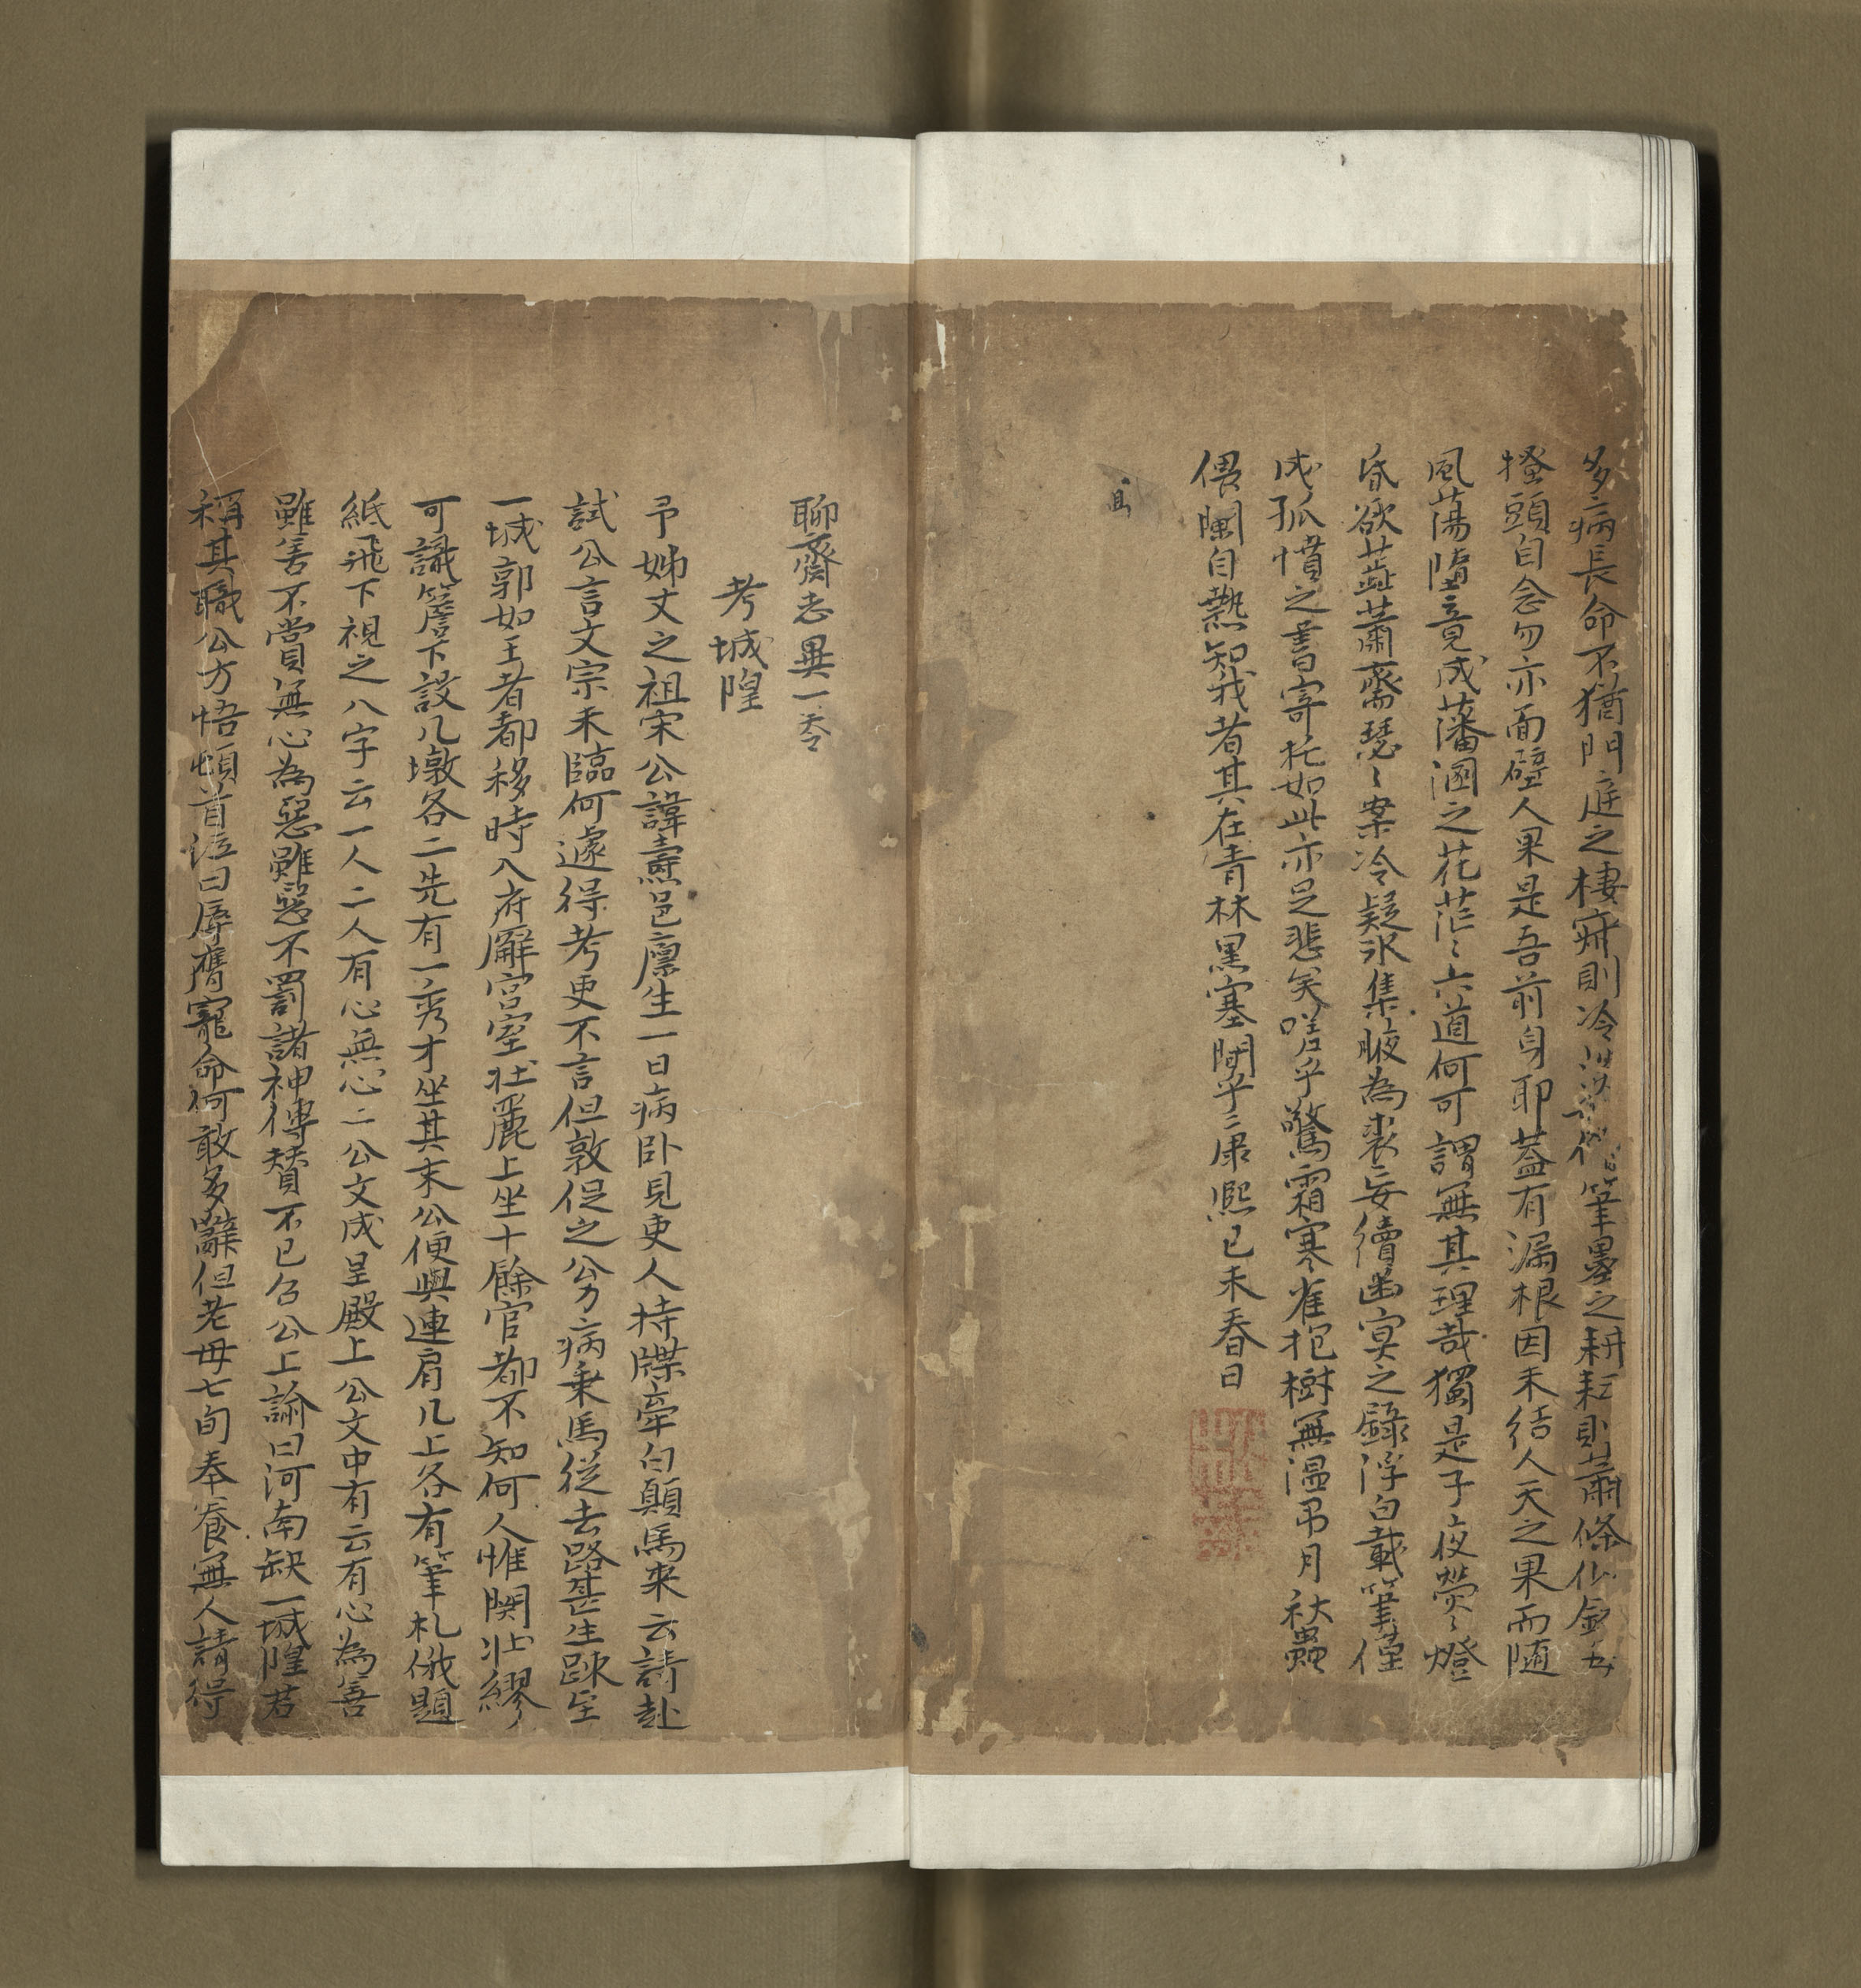 多病長命不猶門庭之棲寂則冷筆墨之耕耘則蕭條似
搔頭自念勿亦面壁人果是吾前身耶蓋有漏根因未結人天之果而隨
風蕩墮竟成藩溷之花茫〻六道何可謂無其理哉獨是子夜熒〻燈
昏欲蕋蕭齋瑟〻案冷疑冰集腋為裘妄續幽冥之錄浮白載筆僅
成孤憤之書寄托如此亦足悲矣嗟乎驚霜寒雀抱樹無溫吊月秋蟲
偎闌自熱知我者其在青林黑塞間乎〻康熙己未春日
聊齋志異一卷
考城隍
予姊丈之祖宋公諱燾邑廩生一日病卧見吏人持牒牽白顛馬来云請赴
試公言文宗未臨何遽得考吏不言但敦促之公力病乗馬從去路甚生踈至
一城郭如王者都移時入府廨宮室壮麗上坐十餘官都不知何人惟関壮繆
可識簷下設几墩各二先有一秀才坐其末公便與連肩几上各有筆札俄題
紙飛下視之八字云一人二人有心無心二公文成呈殿上公文中有云有心為善
雖善不賞無心為惡雖惡不罰諸神傳贊不已召公上諭曰河南缺一城隍君
稱其職公方悟頓首泣曰辱膺寵命何敢多辭但老母七旬奉養無人請得